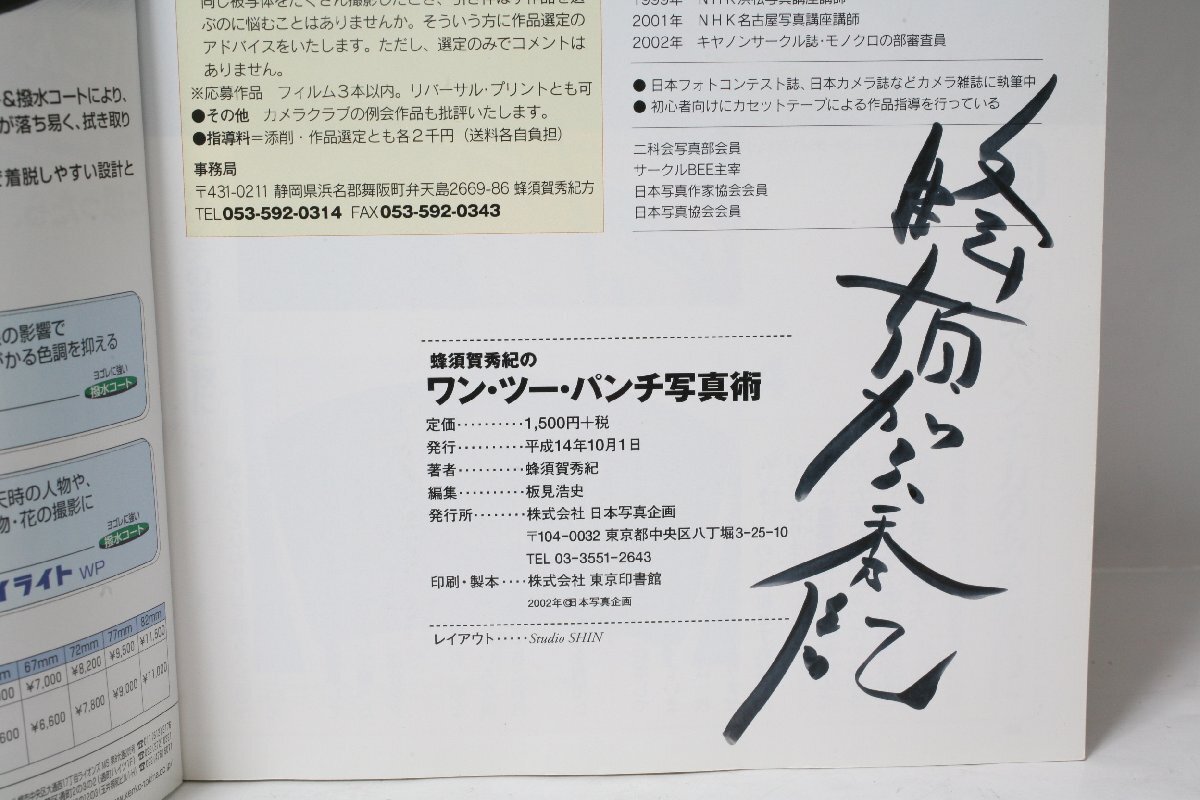 ＆撥水コートにより、
が落ち易く、拭き取り
で着脱しやすい設計と
の影響で
がかる色調を抑える
ヨゴレに強い
撥水コート
天時の人物や、
物・花の撮影に
ヨゴレに強い
撥水コート
イライト WP
67mm 72mm 77mm 82mm
¥7,000 ¥8,200 ¥9,500 ¥11,500
¥6,600 ¥7,800 ¥9,000 ¥11,000
ぶのに悩むことはありませんか。そういう方に作品選定の
アドバイスをいたします。ただし、選定のみでコメントは
ありません。
※応募作品　フィルム3本以内。リバーサル・プリントとも可
●その他　カメラクラブの例会作品も批評いたします。
●指導料＝添削・作品選定とも各2千円（送料各自負担）
事務局
〒431-0211 静岡県浜名郡舞阪町弁天島2669-86 蜂須賀秀紀方
TEL053-592-0314 FAX053-592-0343
1999年　NHK浜松写真講座講師
2001年　NHK名古屋写真講座講師
2002年　キヤノンサークル誌・モノクロの部審査員
●日本フォトコンテスト誌、日本カメラ誌などカメラ雑誌に執筆中
●初心者向けにカセットテープによる作品指導を行っている
二科会写真部会員
サークルBEE主宰
日本写真作家協会会員
日本写真協会会員
蜂須賀秀紀の
ワン・ツー・パンチ写真術
定価‥‥‥‥‥1,500円＋税
発行‥‥‥‥‥平成14年10月1日
著者‥‥‥‥‥蜂須賀秀紀
編集‥‥‥‥‥板見浩史
発行所‥‥‥‥株式会社 日本写真企画
〒104-0032 東京都中央区八丁堀3-25-10
TEL 03-3551-2643
印刷・製本‥‥株式会社 東京印書館
2002年©日本写真企画
レイアウト‥‥‥Studio SHIN
蜂須賀秀紀